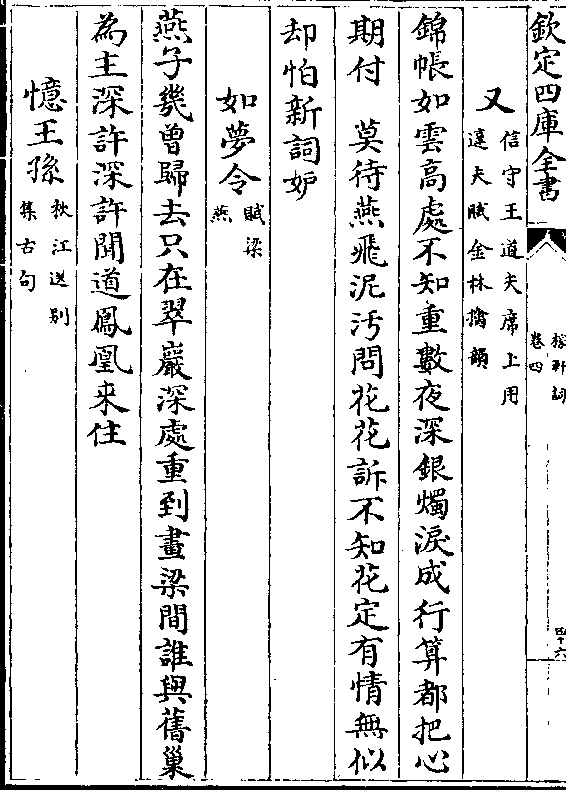 欽定四庫全書
稼軒詞
卷四
四十六
又
信守王道夫席上用
達夫賦金林檎韻
錦帳如雲高處不知重數夜深銀燭淚成行算都把心
期付　莫待燕飛泥汚問花花訴不知花定有情無似
却怕新詞妒
如夢令
賦梁
燕
燕子幾曾歸去只在翠巖深處重到畫梁間誰與舊巢
為主深許深許聞道鳳凰来住
憶王孫
秋江送别
集古句